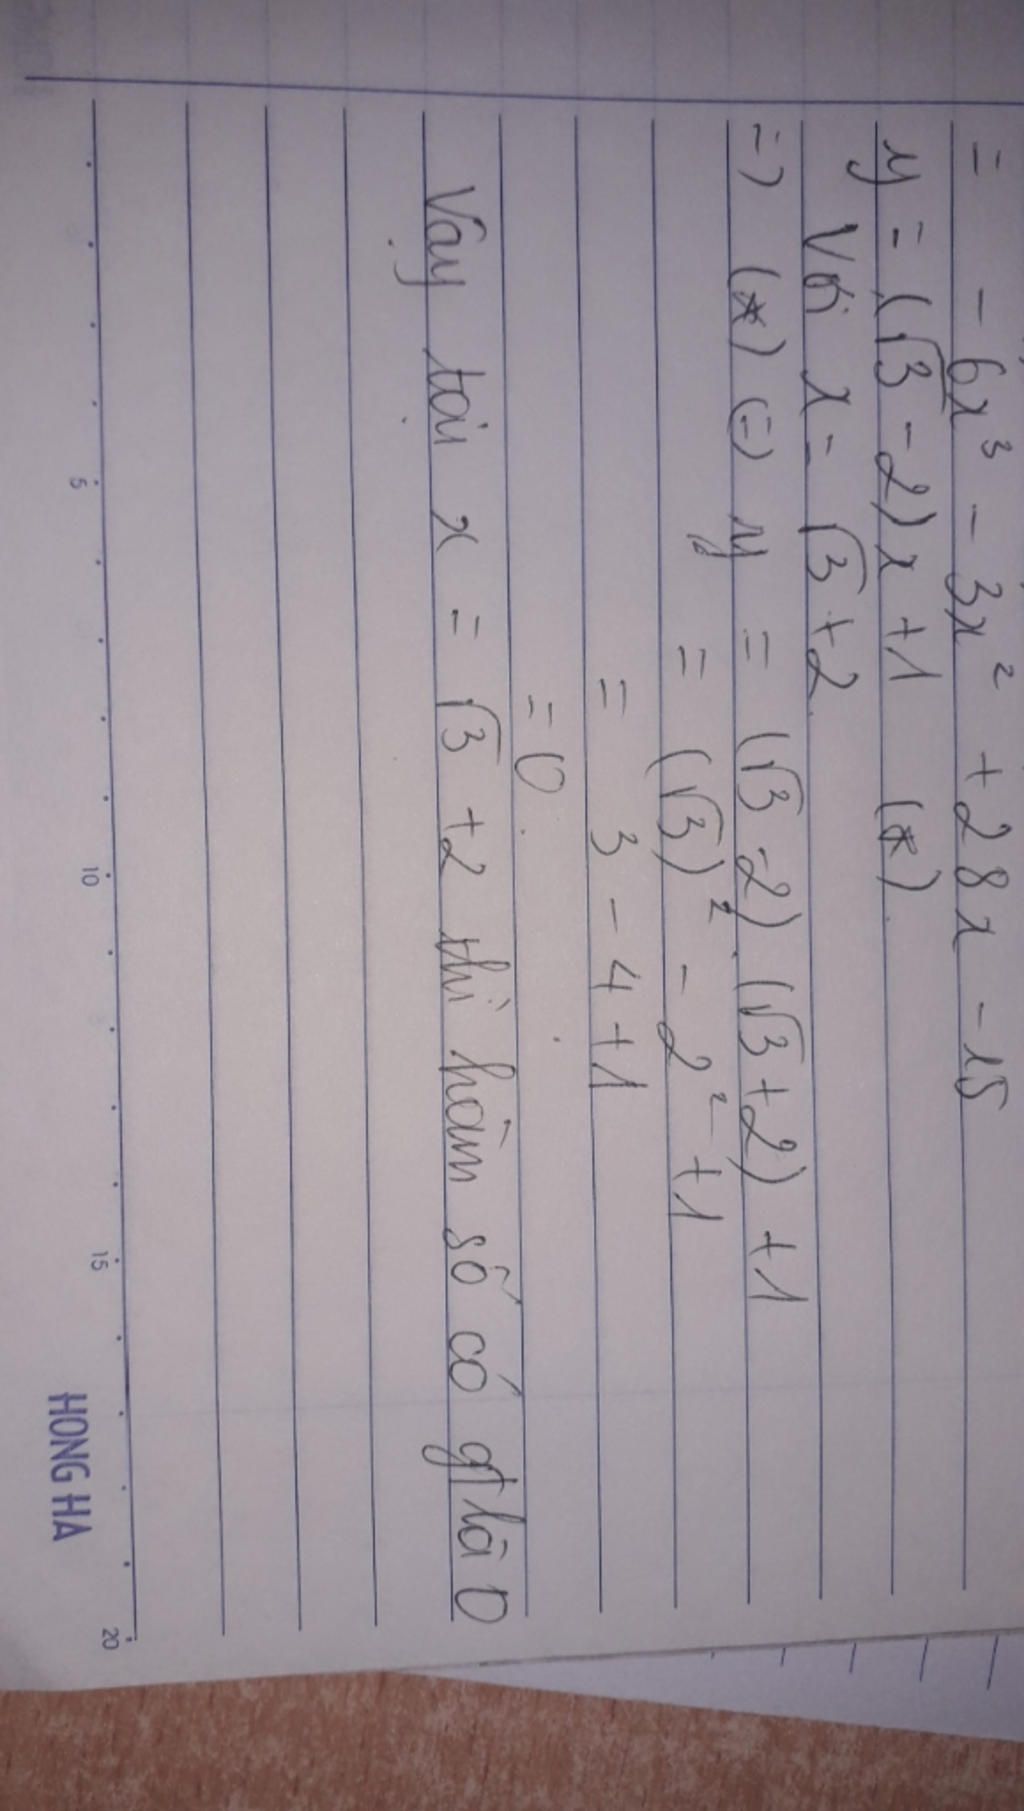 = - 6x³ - 3x² + 28x - 15
y = (√3 - 2)x + 1 (*)
Với x = √3 + 2
=> (*) (=) y = (√3 - 2).(√3 + 2) + 1
= (√3)² - 2² + 1
= 3 - 4 + 1
= 0.
Vậy tại x = √3 + 2 thì hàm số có gt là 0
5 10 15 20
HONG HA